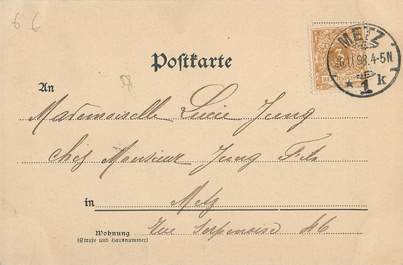 6 6
METZ
4-5N.
* 1 k
Postkarte
An
Mademoiselle Lucie Jung
chez Monsieur Jung Fils
in Metz
Wohnung
(Straße und Hausnummer)
Rue Serpenoise 46